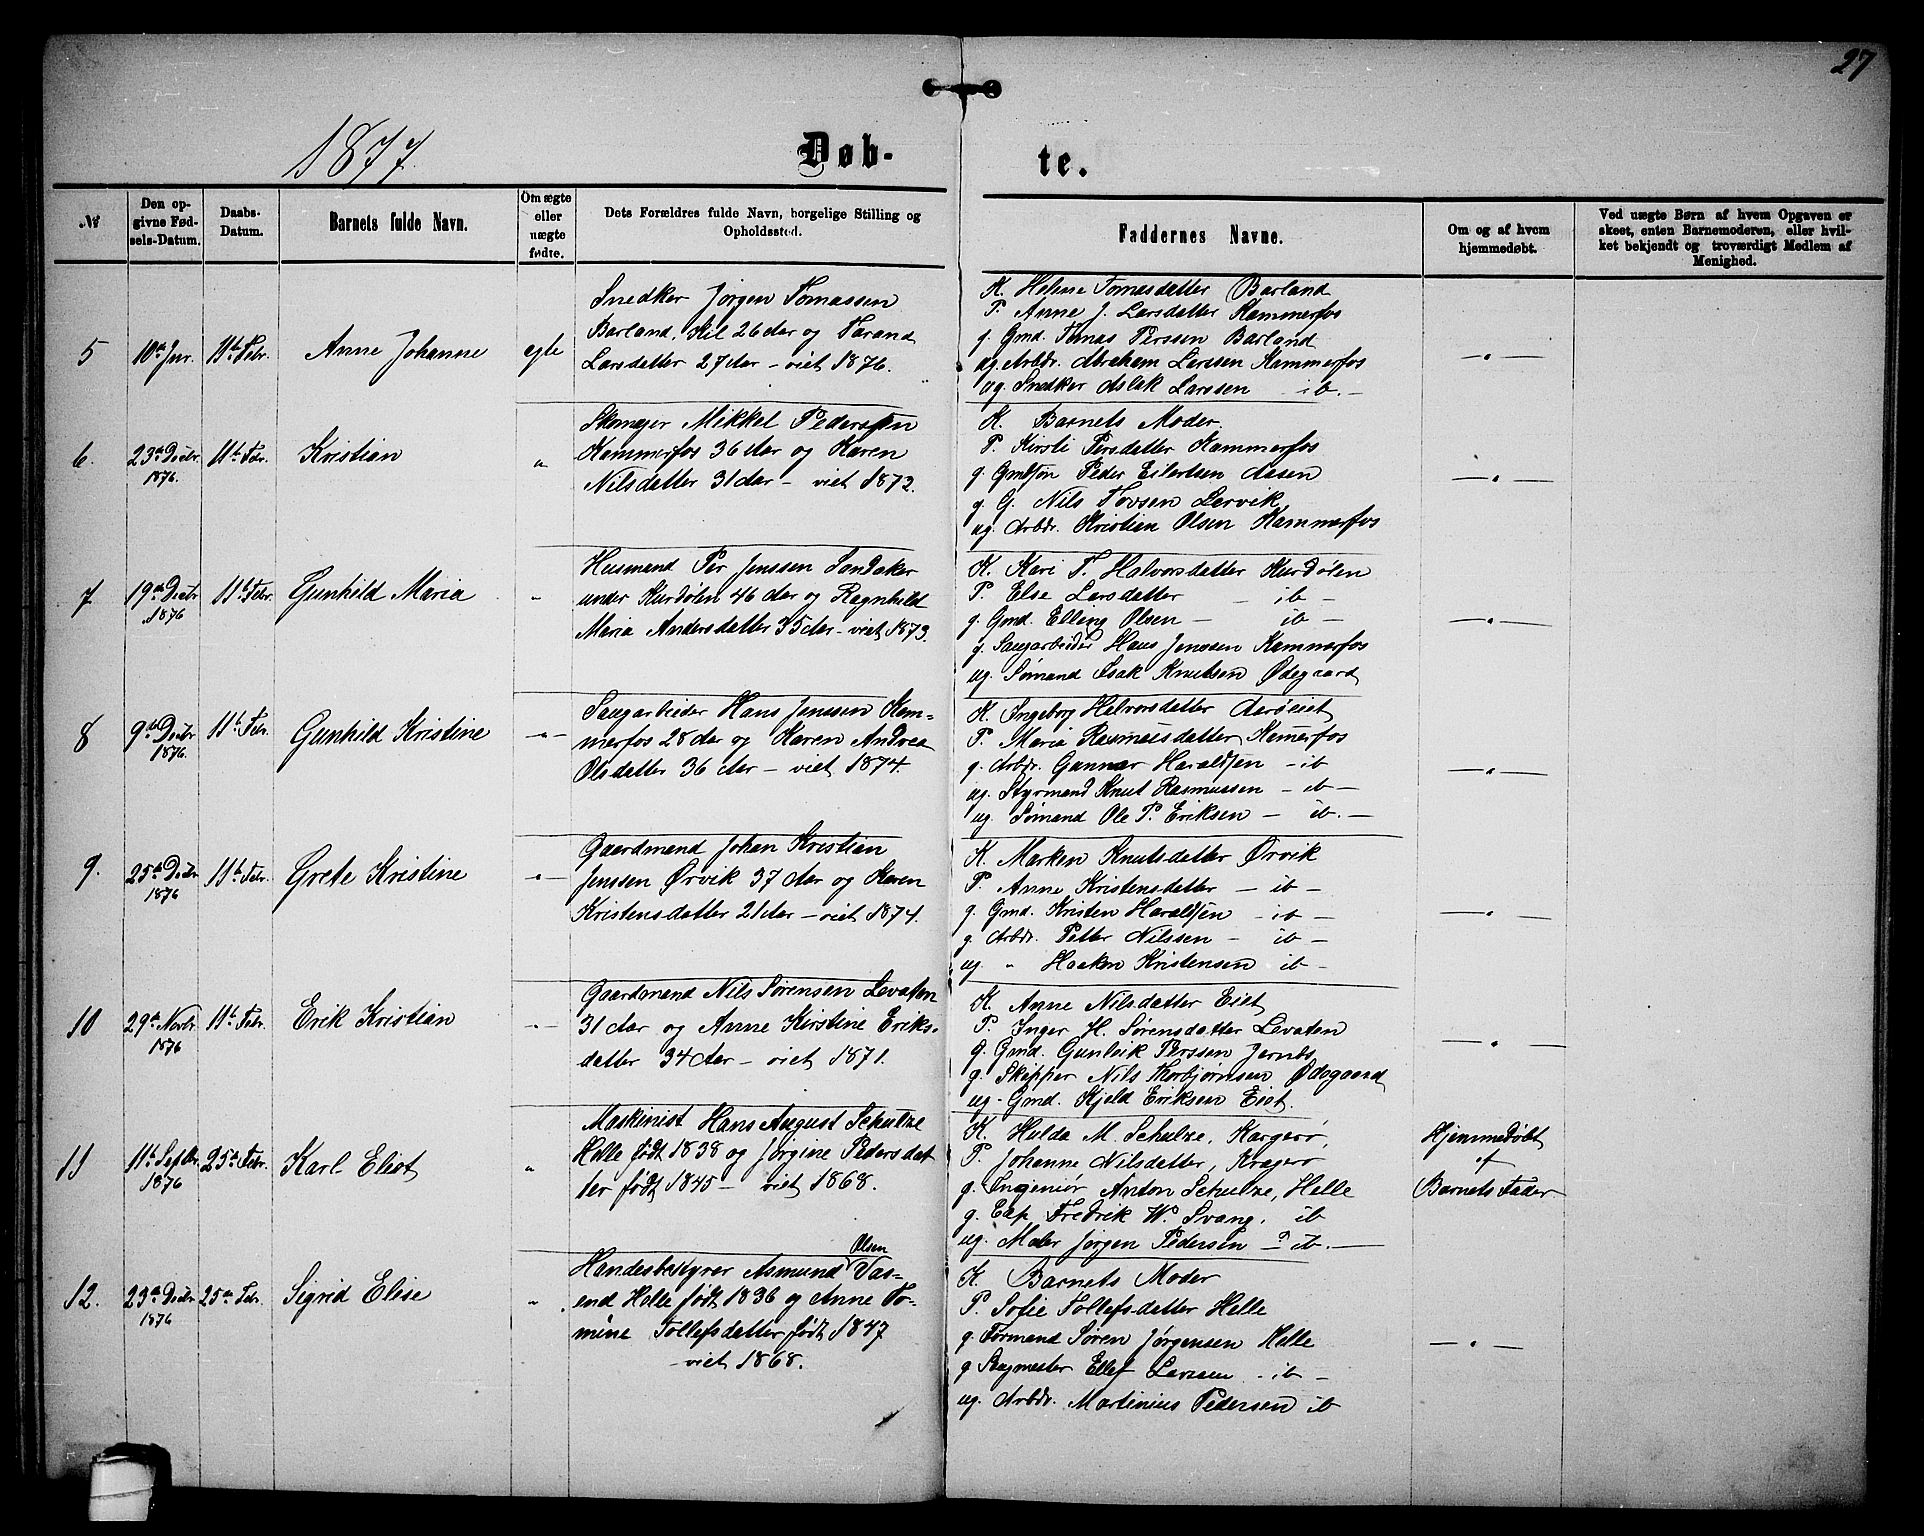 27
1877.
Døb-
te.
№
Den opgivne Fødsels-Datum.
Daabs-Datum.
Barnets fulde Navn.
Om ægte eller uægte fødte.
Dets Forældres fulde Navn, borgelige Stilling og Opholdssted.
Faddernes Navne.
Om og af hvem hjemmedøbt.
Ved uægte Børn af hvem Opgaven er skeet, enten Barnemoderen, eller hvilket bekjendt og troværdigt Medlem af Menighed.
5 10de Jnr. 11te Febr. Anne Johanne egte
Snedker Jørgen Tomassen
Barland, Kil 26 Aar og Tarand
Larsdatter 27 Aar – viet 1876.
K. Helene Tomasdatter Barland
P. Anne J. Larsdatter Kammerfos
g. Gmd. Tomas Perssen Barland
ug. Arbdr. Abraham Larssen Kammerfos
ug. Snedker Aslak Larssen ib. –
— " —
6. 23de Decbr. 1876. 11te Febr. Kristian "
Mikkel Pederssen
Kammerfos 36 Aar og Karen
Nilsdatter 31 Aar – viet 1872.
K. Barnets Moder.
P. Kirsti Persdatter Kammerfos
g. Peder Eilertsen Aasen
g. G. Nils Tovsen Lervik
ug. Arbdr. Kristian Olsen Kammerfos
— " —
7 19de Decbr. 1876 11te Febr. Gunhild Maria "
Husmand Per Jenssen Sandaker
under Kurdølen 46 Aar og Ragnhild
Maria Andersdatter 35 Aar – viet 1873.
K. Kari T. Halvorsdatter Kurdølen
P. Else Larsdatter – ib –
g. Gmd. Elling Olsen – ib –
g. Saugarbeider Hans Jenssen Kammerfos
ug. Sømand Isak Knutsen Ødegaard
— " —
8 9de Decbr. 1876. 11te Febr. Gunhild Kristine — " —
Saugarbeider Hans Jenssen Kam-
merfos 28 Aar og Karen Andrea
Olsdatter 36 Aar – viet 1874.
K. Ingeborg Halvorsdatter Aarøeiet
P. Maria Rasmusdatter Kamerfos
g. Arbdr. Gunnar Haraldsen – ib
ug. Styrmand Knut Rasmussen – ib –
ug. Sømand Ole P. Eriksen – ib. –
— " —
9. 25de Decbr 1876 11te Febr. Grete Kristine — " —
Gaardmand Johan Kristian
Jenssen Ørvik 37 Aar og Karen
Kristensdatter 21 Aar – viet 1874.
K. Marken Knutsdatter Ørvik
P. Anne Kristensdatter – ib –
g. Gmd. Kristen Haraldsen – ib –
g. Arbdr. Petter Nilssen – ib –
ug. " Haaken Kristensen ib –
— " —
10 29de Novbr. 1876 11te Febr. Erik Kristian — " —
Gaardmand Nils Sørensen Levaten
31 Aar og Anne Kirstine Eriks-
datter 34 Aar – viet 1871.
K. Anne Nilsdatter Eiet
P. Inger H. Sørensdatter Levaten
g. Gmd. Gunleik Perssen
g. Skipper Nils Thorbjørnsen Ødegaard
ug. Gmd. Kjeld Eriksen Eiet.
— " —
11 11te Septbr. 1876 25de Febr. Karl Eliot "
Maskinist Hans August Schulze
Helle født 1838 og Jørgine Pedersdat
ter født 1845 – viet 1868.
K. Hulda M. Schulze, Kargerø,
P. Johanne Nilsdatter, Kragerø
g. Ingeniør Anton Schulze, Helle
g. Cap Fredrik W. Svang. ib
ug. Maler Jørgen Pedersen ib. –
Hjemmedøbt
af
Barnets Fader
12. 23de Decbr 1876 25de Febr. Sigrid Elise "
Olsen
Handesbestyrer Asmund Vas-
end Helle født 1836 og Anne To-
mine Tollefsdatter født 1847
– viet 1868.
K. Barnets Moder
P. Sofie Tollefsdatter Helle
g. Formand Søren Jørgensen Helle
g Sagmester Ellef Larssen – ib –
ug. Arbdr. Martinius Pedersen ib
— " —